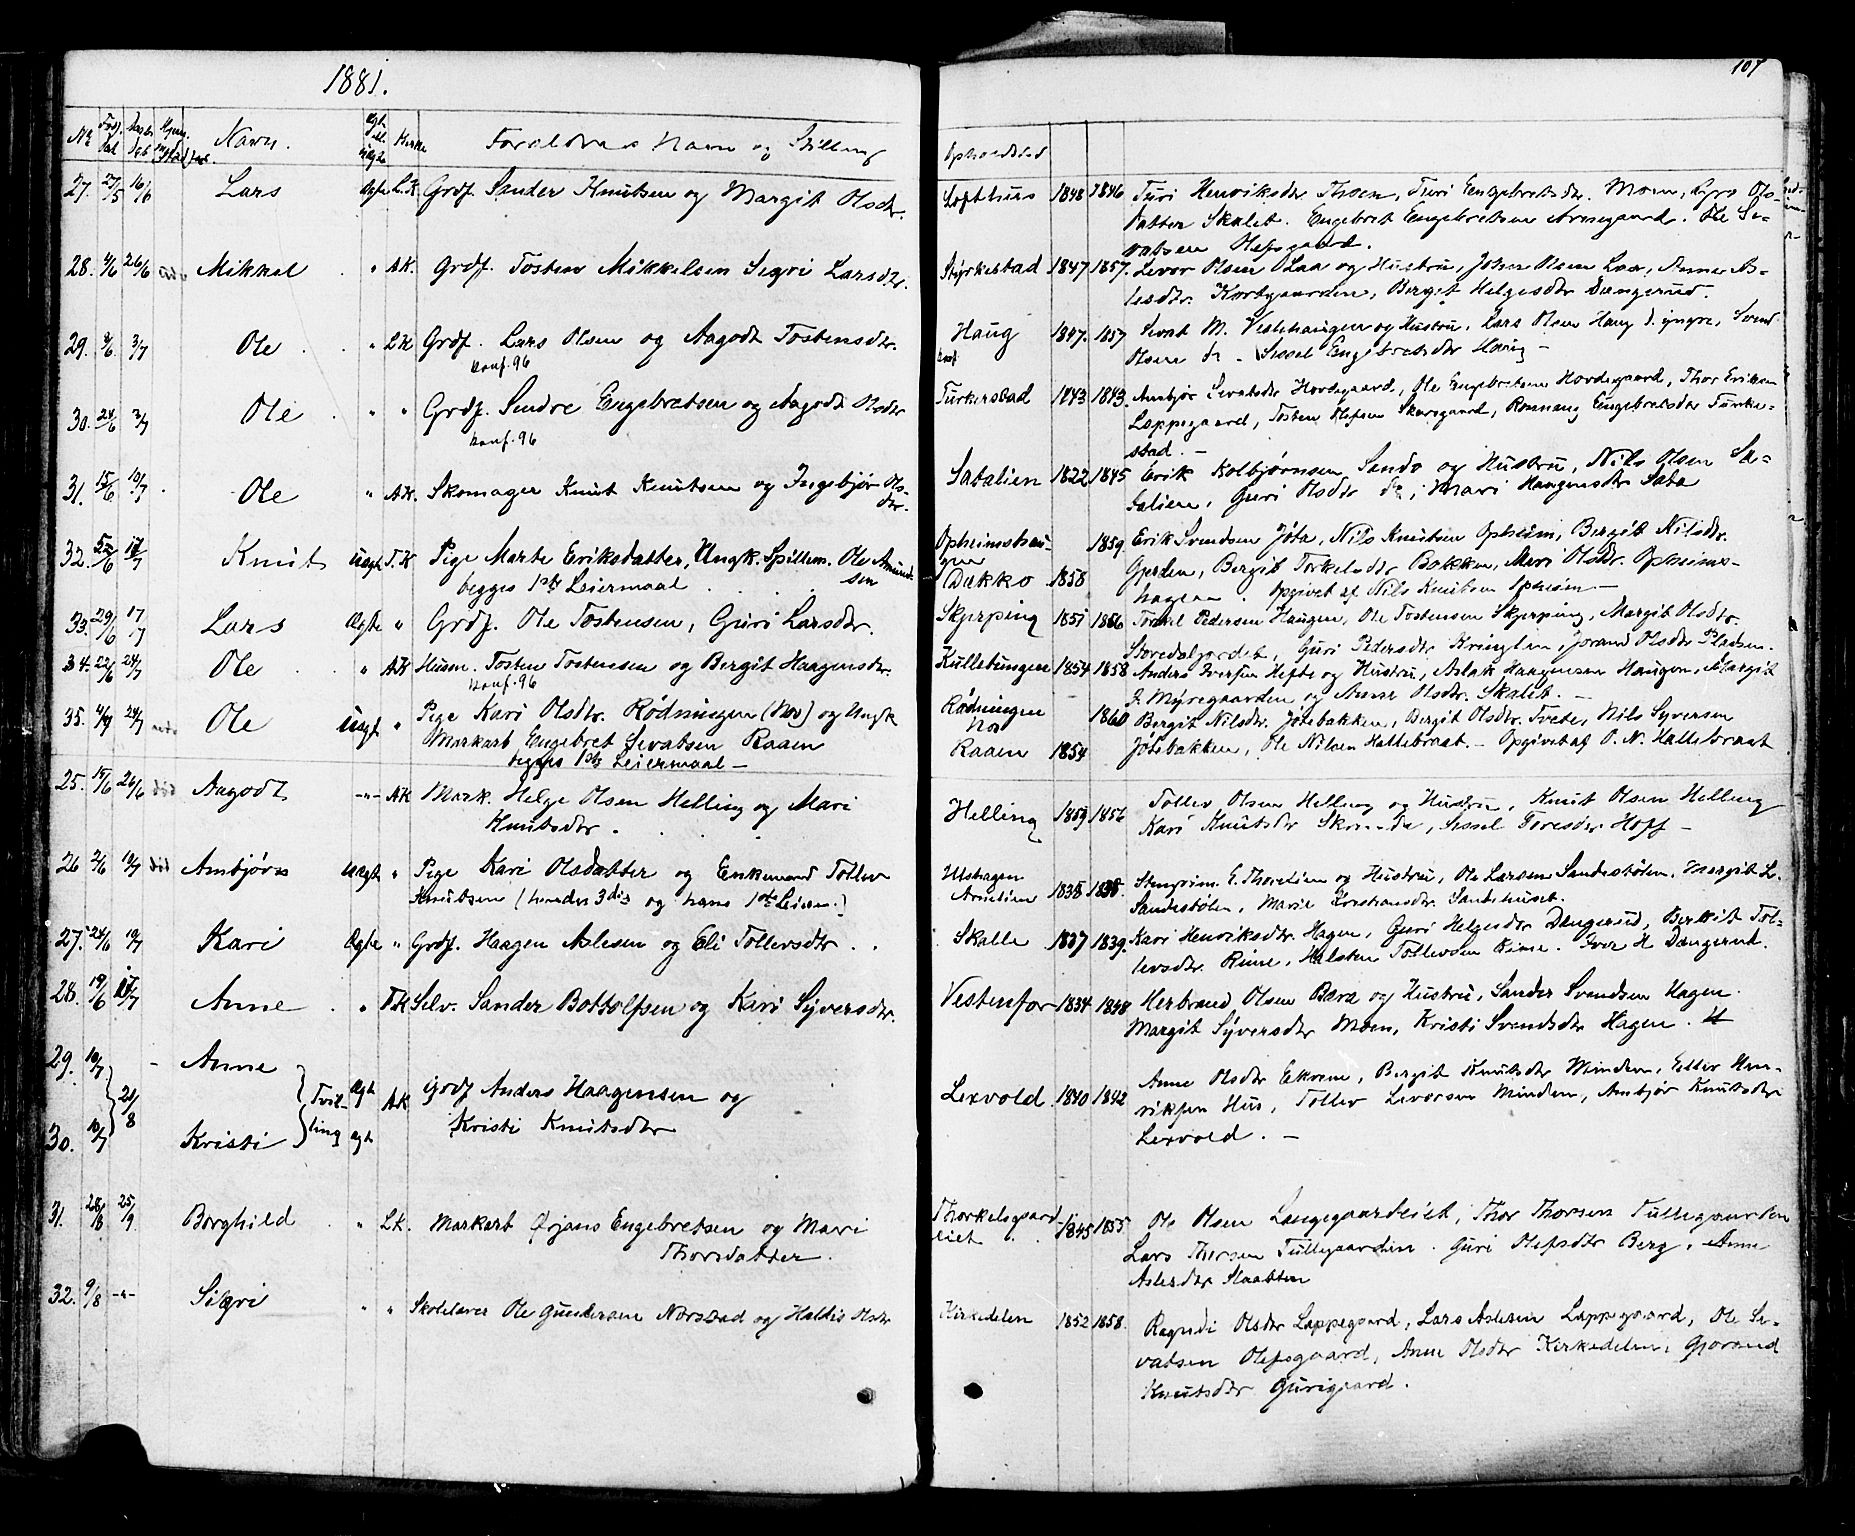 1881.
107
No Navn. Kirke Forældres Navn og Stilling Opholdsted
27. 27/5 16/6 Lars Ægte L.K Grdf. Sander Knutsen og Margit Olsdr. Lofthus 1848 1846 Turi Henriksdr Thoen, Turi Engebretsdr. Moen, Gro Ols-
datter Skalet. Engebret Engebretsen Arnegaard. Ole Se-
vatsen Olefsgaard.
28. 4/6 26/6 Mikkel " A.K. Grdf. Tosten Mikkelsen Sigri Larsdtr. Styrkestad 1847 1857. Levor Olsen Laa og Hustru, Johan Olsen Laa, Anne As-
lesdtr. Kortgaarden, Berget Helgesdtr Dængerud.
29. 9/6 3/7 Ole " L.K Grdf. Lars Olsen og Aagodt Tostensdr. Haug 1847. 1857 Sevat M. Veslehaugen og Hustru, Lars Olsen Haug d. yngre, Svend
konf. 96
Olsen do - Sissel Engebretsdtr Haug -
30. 24/6 3/7 Ole " " Grdf. Sindre Engebretsen og Aagodt Olsdtr Turkerstad 1843 1843. Ambjør Sevatsdr Hovdegaard, Ole Engebretsen Hovdegaard, Thor Eriksen
konf. 96
Lappegaard, Tosten Olefsen Skarsgaard, Rønnaug Engebretsdtr Turke-
stad. -
31. 15/6 10/7. Ole " A.K. Skomager Knut Knutsen og Ingebjør Ols-
dtr. Satalien 1822 1845 Erik Kolbjørnsen Sando og Hustru, Nils Olsen Sa-
talien, Guri Olsdtr do, Mari Haagensdtr Sata
32. 17/7 Knut Uægt T.K Pige Marte Eriksdatter, Ungk. Spillem. Ole Amund-
sen Opheimshau-
gen 1859 Erik Svendsen Jota, Nils Knutsen Opheim, Bergit Nilsdtr.
begges 1ste Leiermaal Bakko 1858 Gjerden, Bergit Torkelsdtr Bakken, Mari Olsdtr. Opheims-
hagen. Opgivet af Nils Knutsen Opheim -
33. 29/6 17/7 Lars Ægte " Grdf. Ole Tostensen, Guri Larsdtr. Skjerping 1851 1856 Torkel Pedersen Haugen, Ole Tostensen Skjerping, Margit Olsdtr.
Storedalgardet, Guri Pedersdtr Kringlen, Jorand Olsdtr Pladsen.
34. 22/6 24/7 Ole " A.K Husm. Tosten Tostensen og Bergit Haagensdtr. Kullebungen 1854 1858 Anders Iversen Hefte og Hustru, Aslak Haagensen Haugen, Margit
konf. 96
J. Myregaarden og Anne Olsdtr. Skaleb. -
35. 4/7 24/7 Ole Uægt " Pige Kari Olsdtr. Rødningen (Nos) og Ungk Rødningen 1860 Bergit Nilsdtr. Jotebakken, Bergit Olsdtr. Tvete, Nils Syversen
Markarb Engebret Sevatsen Raaen Raaen 1854 Jotebakken, Ole Nilsen Hallebraat. - Opgivet af O. N. Hallebraat
begges 1ste Leiermaal -
25. 15/6 26/6 død Aagodt -"- A.K Mark. Helge Olsen Helling og Mari
Knutsdtr. Helling 1859 1856 Tollev Olsen Helling og Hustru, Knut Olsen Helling
Kari Knutsdtr, Sissel Toresdtr Hoff -
26 2/6 10/7 død Ambjørn Uægt " Pige Kari Olsdatter og Enkemand Tollev Ulshagen
Knutsen (hendes 3die og hans 1ste Leierm.) 1835 1838. E. Thorstien og Hustru, Ole Larsen Sandestølen. Margit L.
Sandestølen, Marie Kristiansdtr. Sandehuset.
27. 24/6 10/7 Kari Ægte " Grdf. Haagen Aslesen og Eli Tollevsdtr. Skalle 1837 1839. Kari Henriksdtr Hagen, Guri Helgesdtr Dængerud, Berkit Tol-
levsdtr. Rime, Halsten Tollevsen Rime. Iver H Dængerud.
28. 19/6 17/7 Anne " T.K Selv. Sander Bottolfsen og Kari Syversdtr. Vestenfor 1834 1848 Herbrand Olsen Bæra og Hustru, Sander Svendsen Hagen.
Margit Syversdtr Moen, Kristi Svendsdtr Hagen.
29. 10/7 - Anne Ægt
21/8 Tvil-
ling A.K Grdf Anders Haagensen og
Kristi Knutsdtr Lexvold. 1840 1842 Anne Olsdtr Ekren, Bergit Knutsdtr Minden, Eller Hen-
riksen Hus, Tollev Leversen Minden, Ambjør Knutsdtr
Lexvold. -
30. 10/7 Kristi ægt
31. 28/8 25/9 Borghild " L.K. Markarb Ørjans Engebretsen og Mari
Thorsdatter. Thorkelsgaard-
eiet 1845 1855 Ole Olsen Langegaardeiet, Thor Thorsen Tullegaarden
Lars Thorsen Tullegaarden. Guri Olefsdtr Berg. Anne
Aslesdtr Slaatten
32. 9/8 -"- Sigri " " Skolelærer Ole Gundersen Norstad og Haldis Olsdtr Kirkedelen 1852 1858. Ragndi Olsdtr Lappegaard, Lars Aslesen Lappegaard, Ole Se-
vatsen Olefsgaard, Anne Olsdtr Kirkedelen, Gjorand
Knutsdtr Gurigaard.